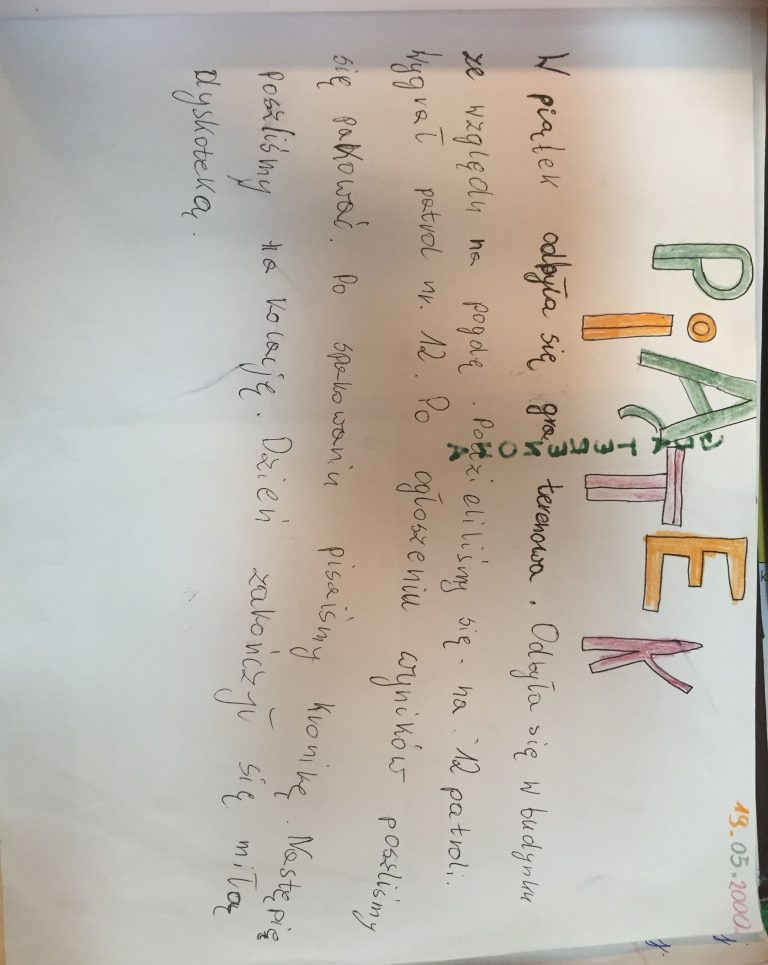 19.05.2000r.
PiĄTEK
W piątek odbyła się gra terenowa. Odbyła się w budynku
ze względu na pogdę. Podzieliliśmy się na 12 patroli.
Wygrał patrol nr. 12. Po ogłoszeniu wyników poszliśmy
się pakować. Po spakowaniu pisaiśmy kronikę. Następię
poszliśmy na kolację. Dzień zakończył się miłą
dyskoteką.